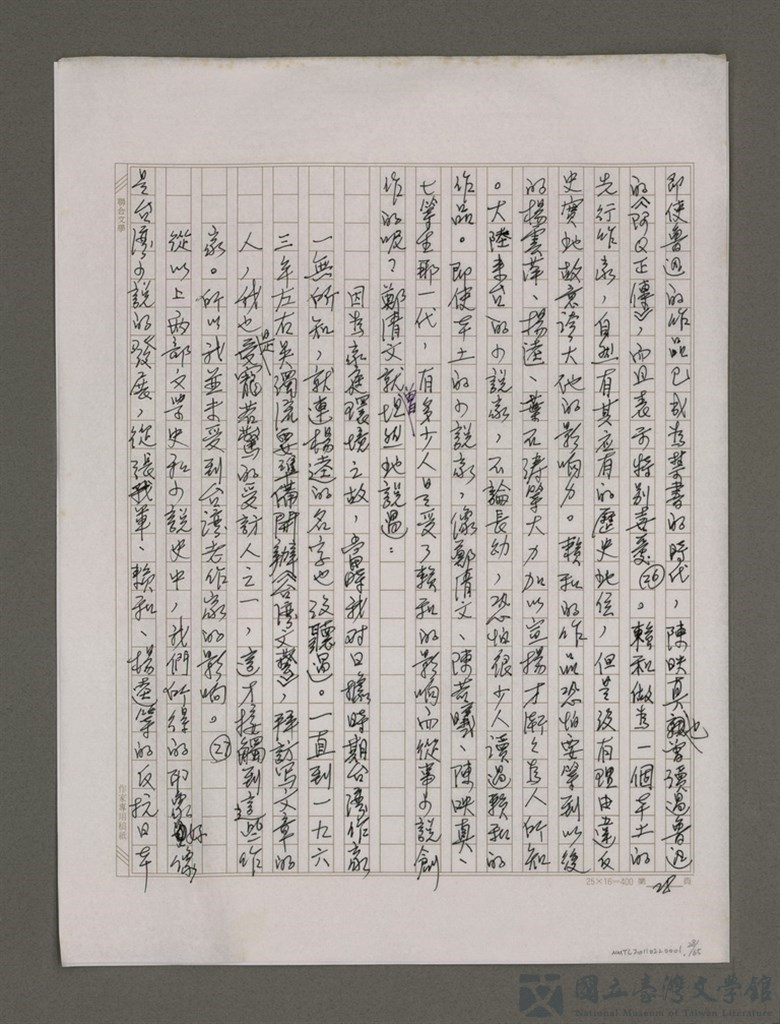 即使魯迅的作品已成為禁書的時代，陳映真也曾讀過魯迅
的《阿Q正傳》，而且表示特別喜愛㉖。賴和做為一個本土的
先行作家，自然有其應有的歷史地位，但是沒有理由違反
史實地故意誇大他的影响力。賴和的作品恐怕要等到以後
的楊雲萍、楊逵、葉石濤等大力加以宣揚才漸漸為人所知
。大陸來台的小說家，不論長幼，恐怕很少人讀過賴和的
作品。即使本土的小說家，像鄭清文、陳若曦、陳映真、
七等生那一代，有多少人是受了賴和的影响而從事小說創
作的呢？鄭清文就曾坦然地說過：
因為家庭環境之故，當時我对日據時期台灣作家
一無所知，就連楊逵的名字也沒聽過。一直到一九六
三年左右吳濁流要準備開辦《台灣文藝》，拜訪写文章的
人，我也是受寵若驚的受訪人之一，這才接觸到這些作
家。所以我並未受到台灣老作家的影响。㉗
從以上兩部文學史和小說史中，我們所得的印象好像
是台灣小說的發展，從張我軍、賴和、楊逵等的反抗日本
聯合文學
作家專用稿紙
25×16=400 第 28 頁
28/65
國立臺灣文學館
National Museum of Taiwan Literature